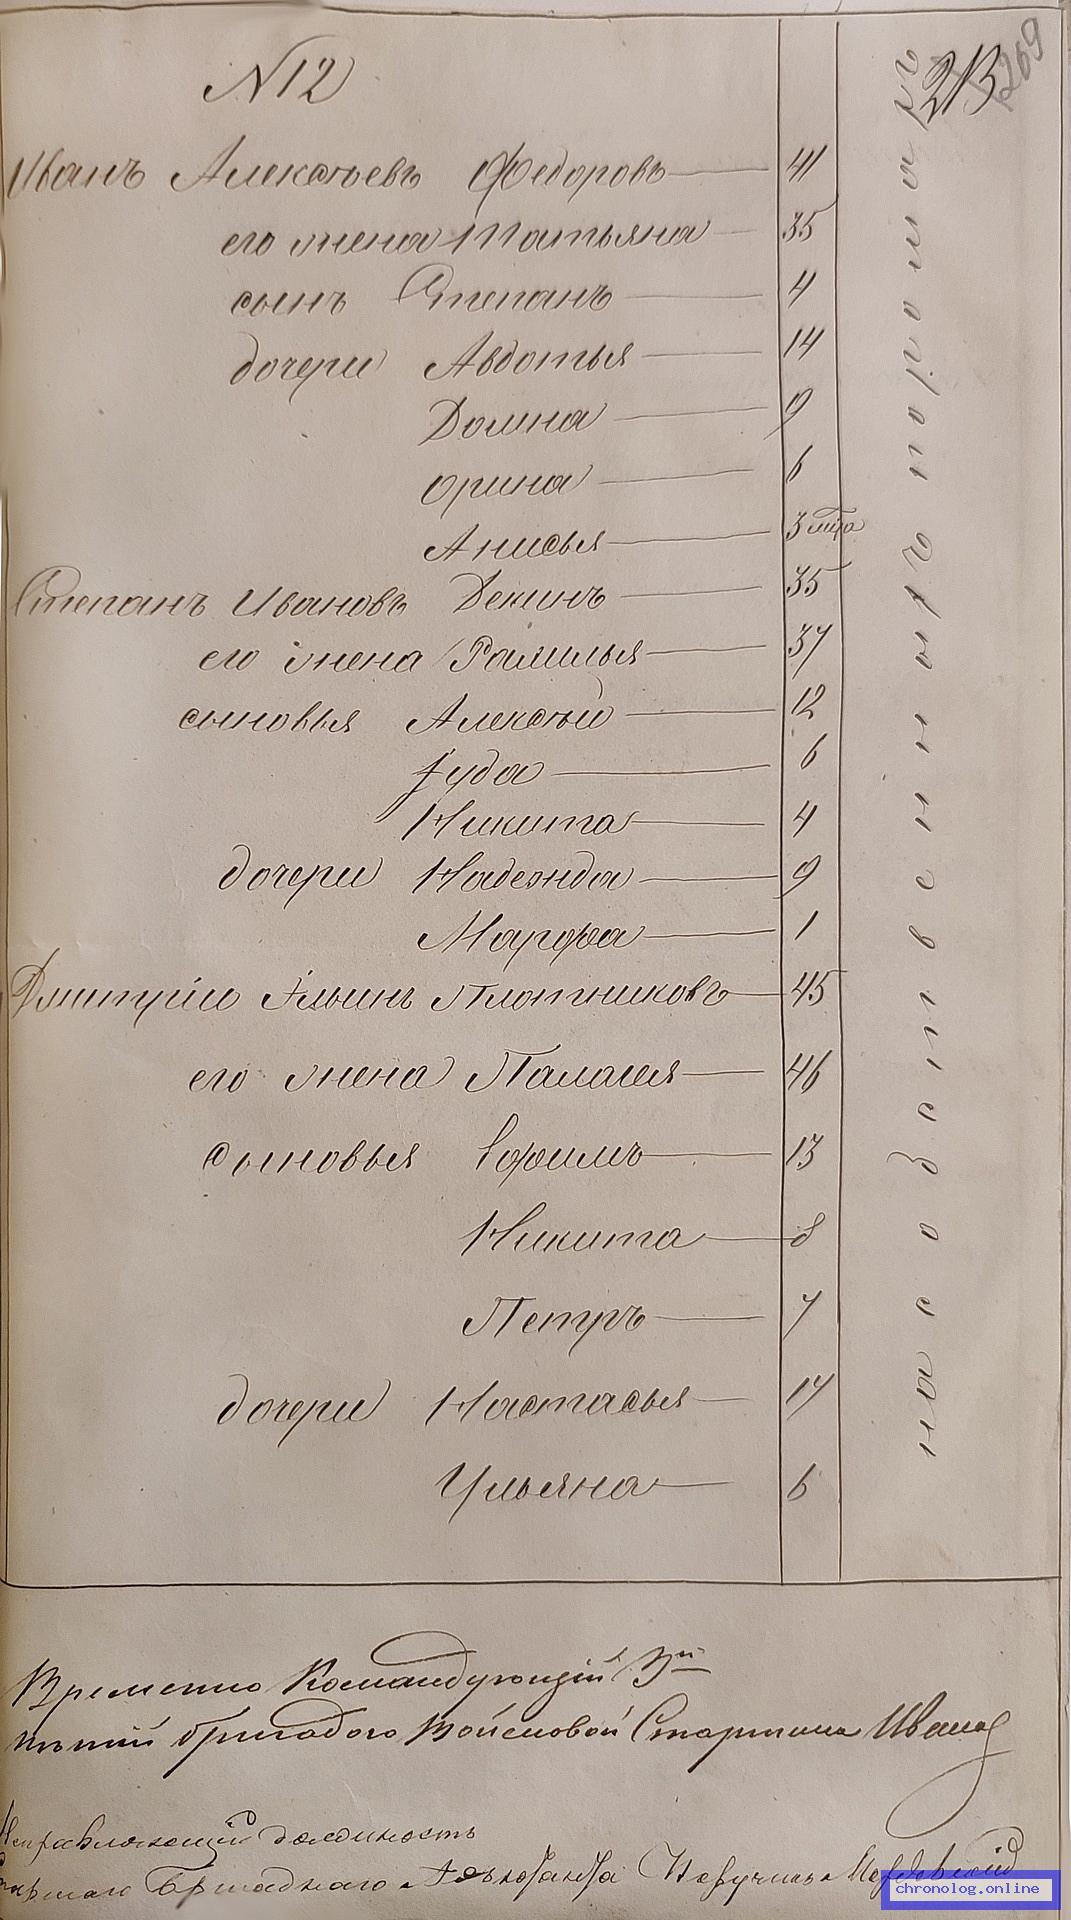 213
269
N 12
Иванъ Алексѣевъ Федоровъ — 41
его жена Татьяна — 35
сынъ Степанъ — 4
дочери Авдотья — 14
Домна — 9
Орина — 6
Анисья — 3 мца
Степанъ Ивановъ Декинъ — 35
его жена Рамилья — 37
сыновья Алексѣй — 12
Іуда — 6
Никита — 4
дочери Надежда — 9
Марфа — 1
Дмитрій Ильинъ Плотниковъ — 45
его жена Палагея — 46
сыновья Ефимъ — 13
Никита — 8
Петръ — 7
дочери Настасья — 17
Ульяна — 6
на собственныхъ подводахъ
Временно Командующій 3й
пѣшій бригадою Войсковой Старшина Иванов
Исправляющій должность
Старшаго Бригаднаго Адъютанта Поручикъ
chronolog.online